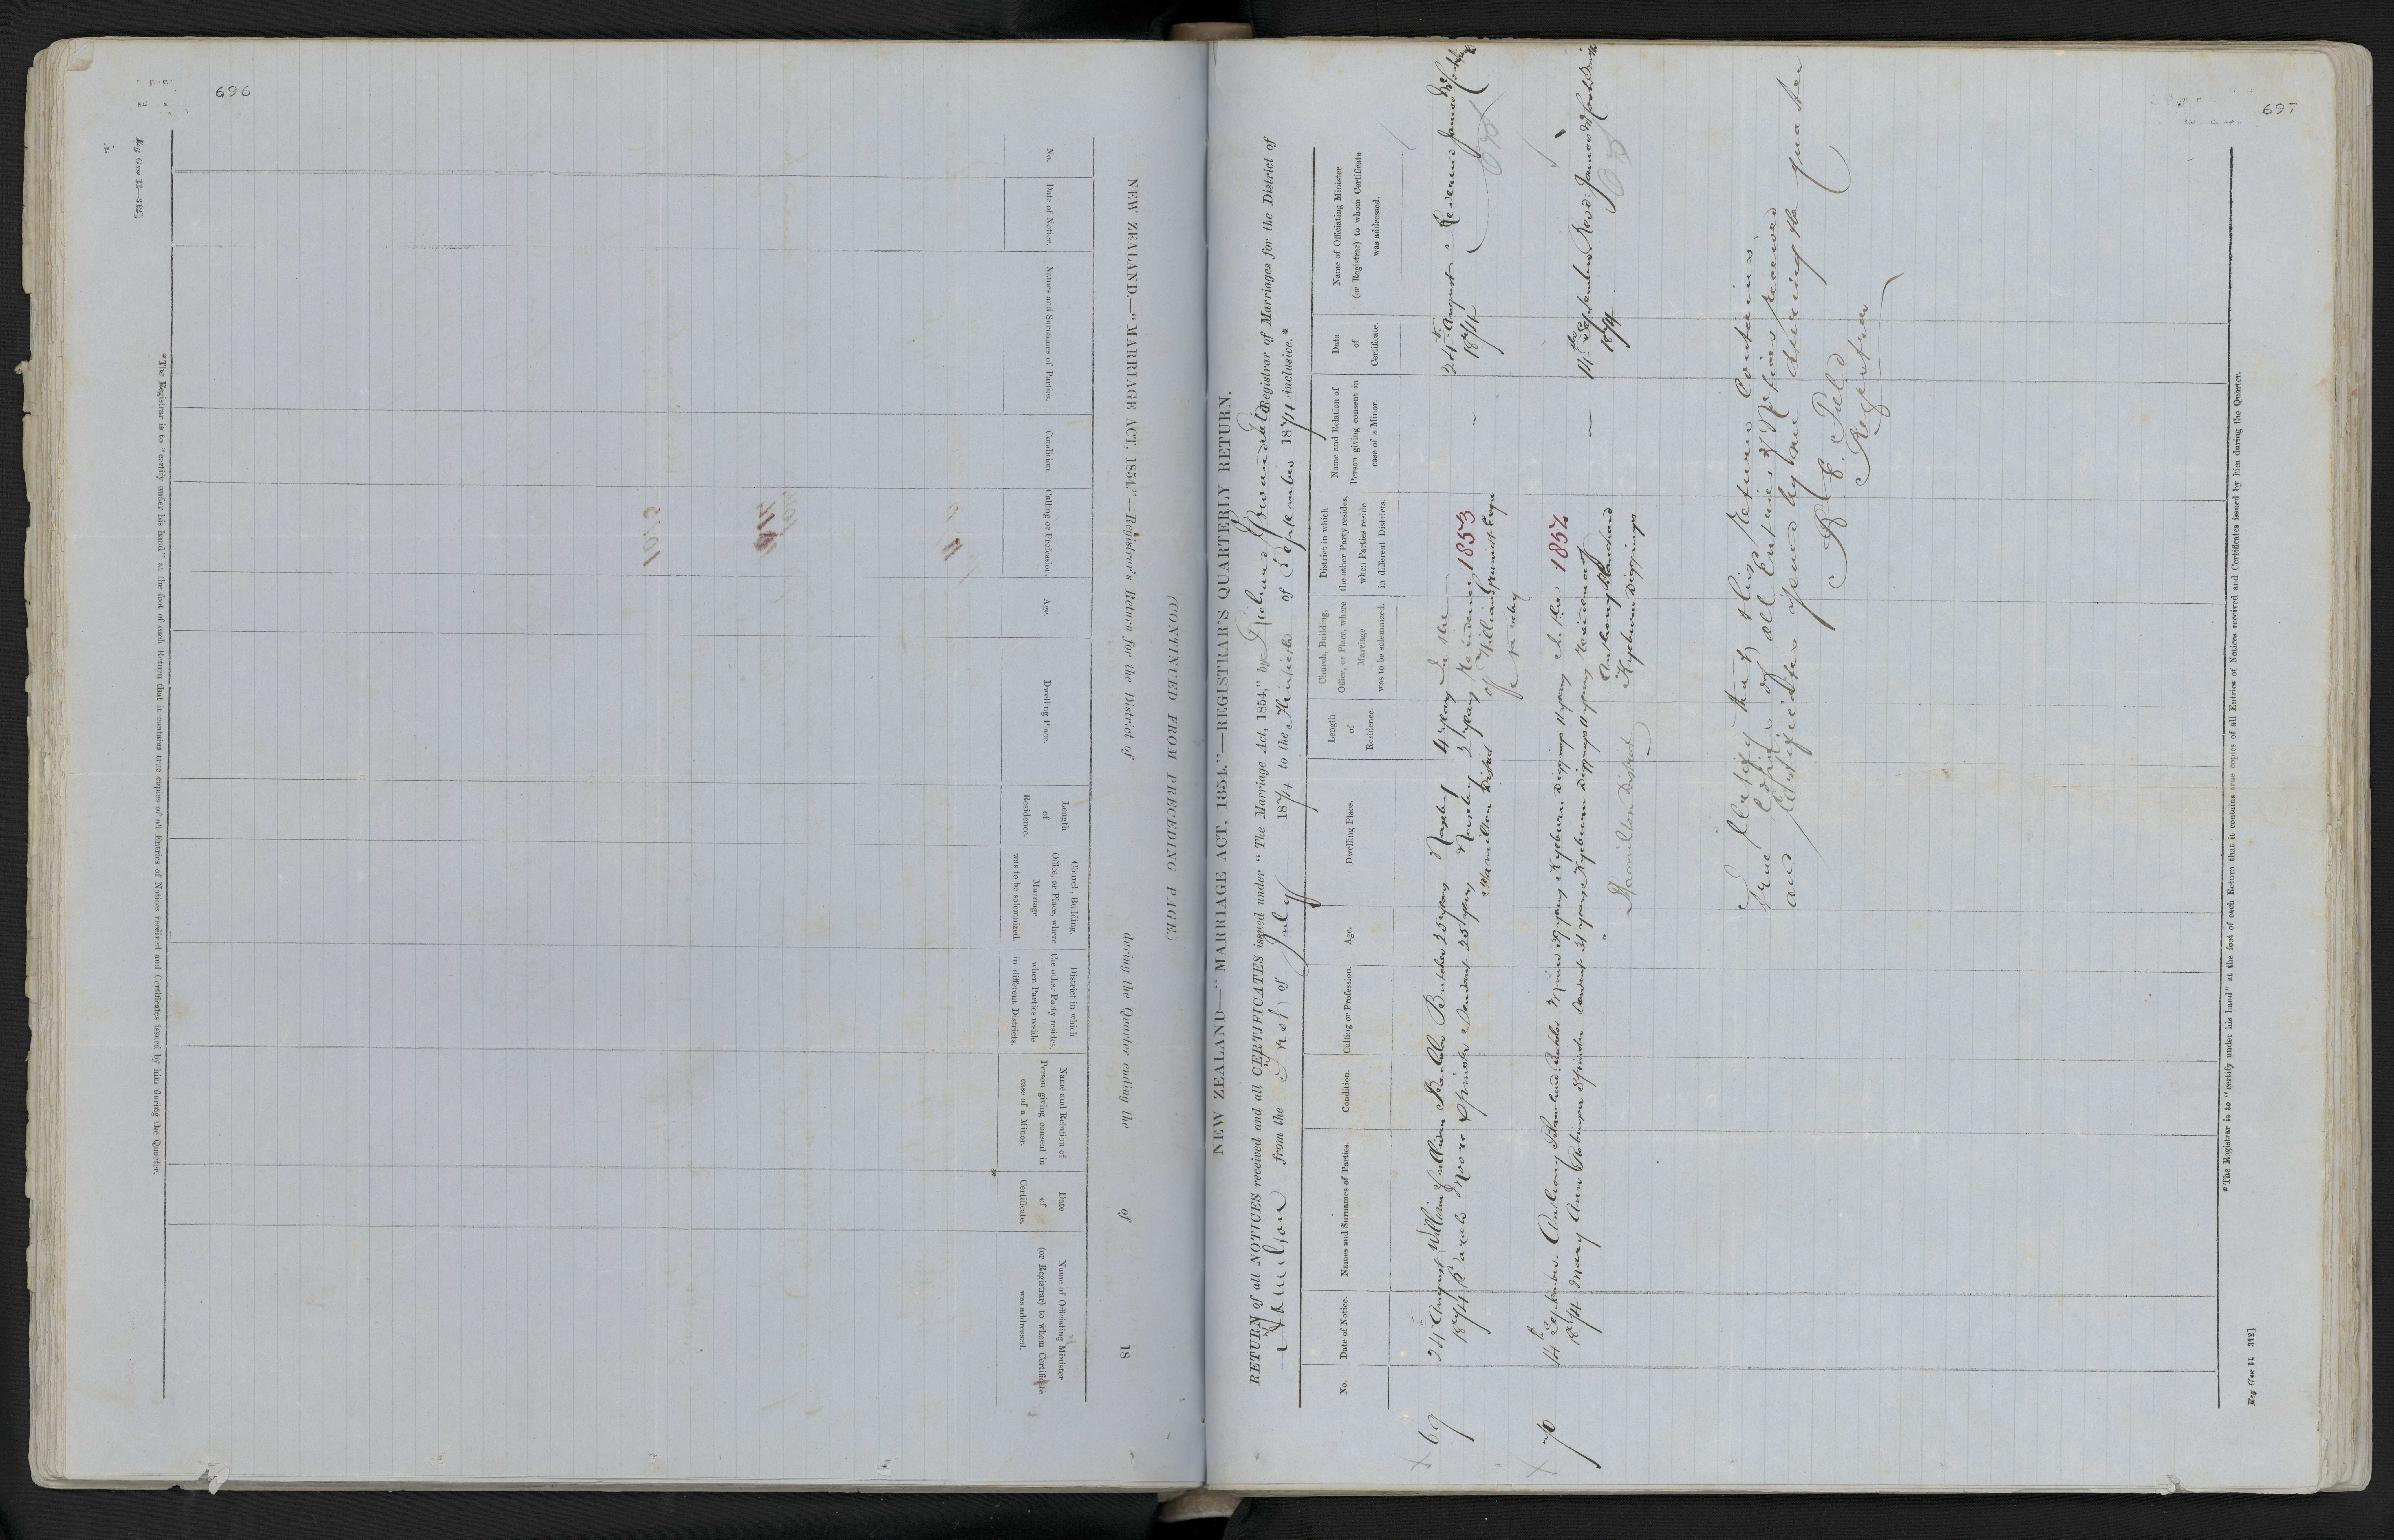 696
NEW ZEALAND.—"MARRIAGE ACT, 1854."—Registrar's Return for the District of during the Quarter ending the of 18
(CONTINUED FROM PRECEDING PAGE.)
No.
Date of Notice.
Names and Surnames of Parties.
Condition.
Calling or Profession.
Age.
Dwelling Place.
Length
of
Residence.
Church, Building,
Office, or Place, where
Marriage
was to be solemnized.
District in which
the other Party resides,
when Parties reside
in different Districts.
Name and Relation of
Person giving consent in
case of a Minor.
Date
of
Certificate.
Name of Officiating Minister
(or Registrar) to whom Certificate
was addressed.
*The Registrar is to "certify under his hand" at the foot of each Return that it contains true copies of all Entries of Notices received and Certificates issued by him during the Quarter.
697
NEW ZEALAND—"MARRIAGE ACT, 1854."—REGISTRAR'S QUARTERLY RETURN.
RETURN of all NOTICES received and all CERTIFICATES issued under "The Marriage Act, 1854," by Registrar of Marriages for the District of
Hamilton from the First of July 1874 to the Thirtieth of September 1874 inclusive.*
No.
Date of Notice.
Names and Surnames of Parties.
Condition.
Calling or Profession.
Age.
Dwelling Place.
Length
of
Residence.
Church, Building,
Office, or Place, where
Marriage
was to be solemnized.
District in which
the other Party resides,
when Parties reside
in different Districts.
Name and Relation of
Person giving consent in
case of a Minor.
Date
of
Certificate.
Name of Officiating Minister
(or Registrar) to whom Certificate
was addressed.
69
24 August
1874
William
Sarah Moore
Spinster
Butcher
Servant
25 years
25 years
Naseby
Naseby
Hamilton District
4 years
2 years
In the
Residence
of William
Naseby
1853
—
24 August
1874
Reverend James
70
14th September
1874
Anthony Blanchard
Mary Ann Robinson
Bachelor
Spinster
Miner
Servant
39 years
31 years
Kyeburn Diggings
Kyeburn Diggings
Hamilton District
11 years
11 years
In the
Residence of
Anthony Blanchard
Kyeburn Diggings
1852
—
14th September
1874
Revd James
I Certify that this Return Contains
true Copies of all Entries of Notices received
and Certificates issued by me during the quarter
R. E. Field
Registrar
*The Registrar is to "certify under his hand" at the foot of each Return that it contains true copies of all Entries of Notices received and Certificates issued by him during the Quarter.
Reg Gen 11—312]